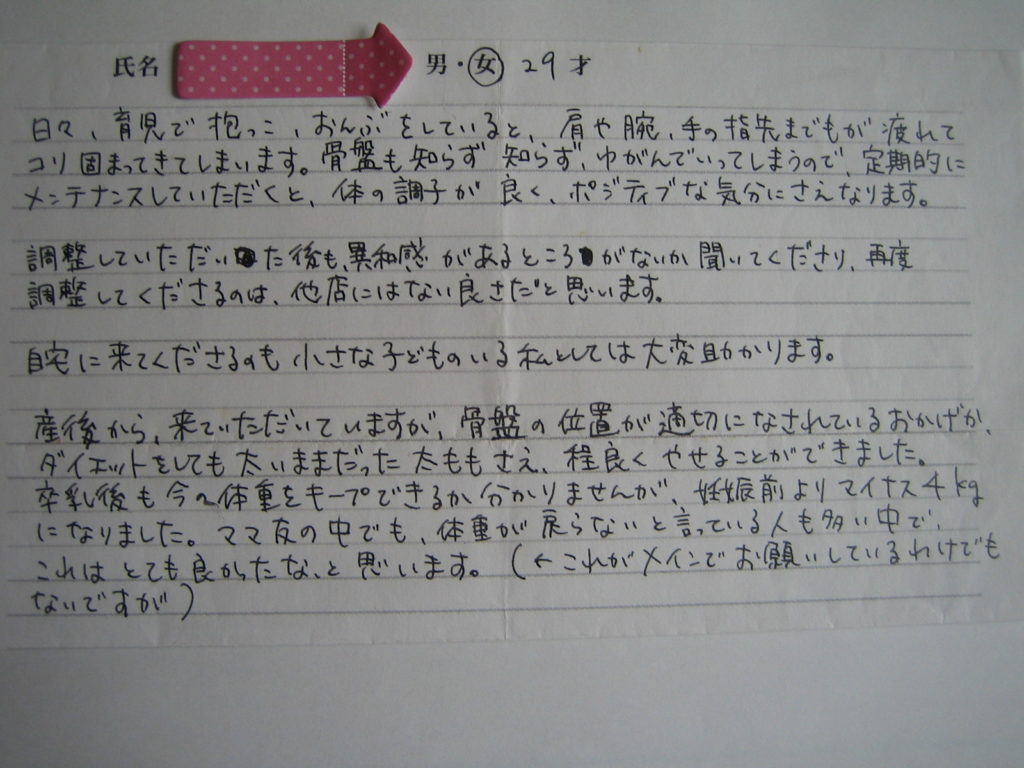 氏名 男・女 29才
日々、育児で抱っこ、おんぶをしていると、肩や腕、手の指先までもが疲れて
コリ固まってきてしまいます。骨盤も知らず知らず、ゆがんでいってしまうので、定期的に
メンテナンスしていただくと、体の調子が良く、ポジティブな気分にさえなります。
調整していただいた後も、異和感があるところがないか聞いてくださり、再度
調整してくださるのは、他店にはない良さだと思います。
自宅に来てくださるのも小さな子どものいる私としては大変助かります。
産後から、来ていただいていますが、骨盤の位置が適切になされているおかげか、
ダイエットをしても太いままだった太ももさえ、程良くやせることができました。
卒乳後も今の体重をキープできるか分かりませんが、妊娠前よりマイナス4kg
になりました。ママ友の中でも、体重が戻らないと言っている人も多い中で、
これはとても良かったな、と思います。(←これがメインでお願いしているわけでも
ないですが)